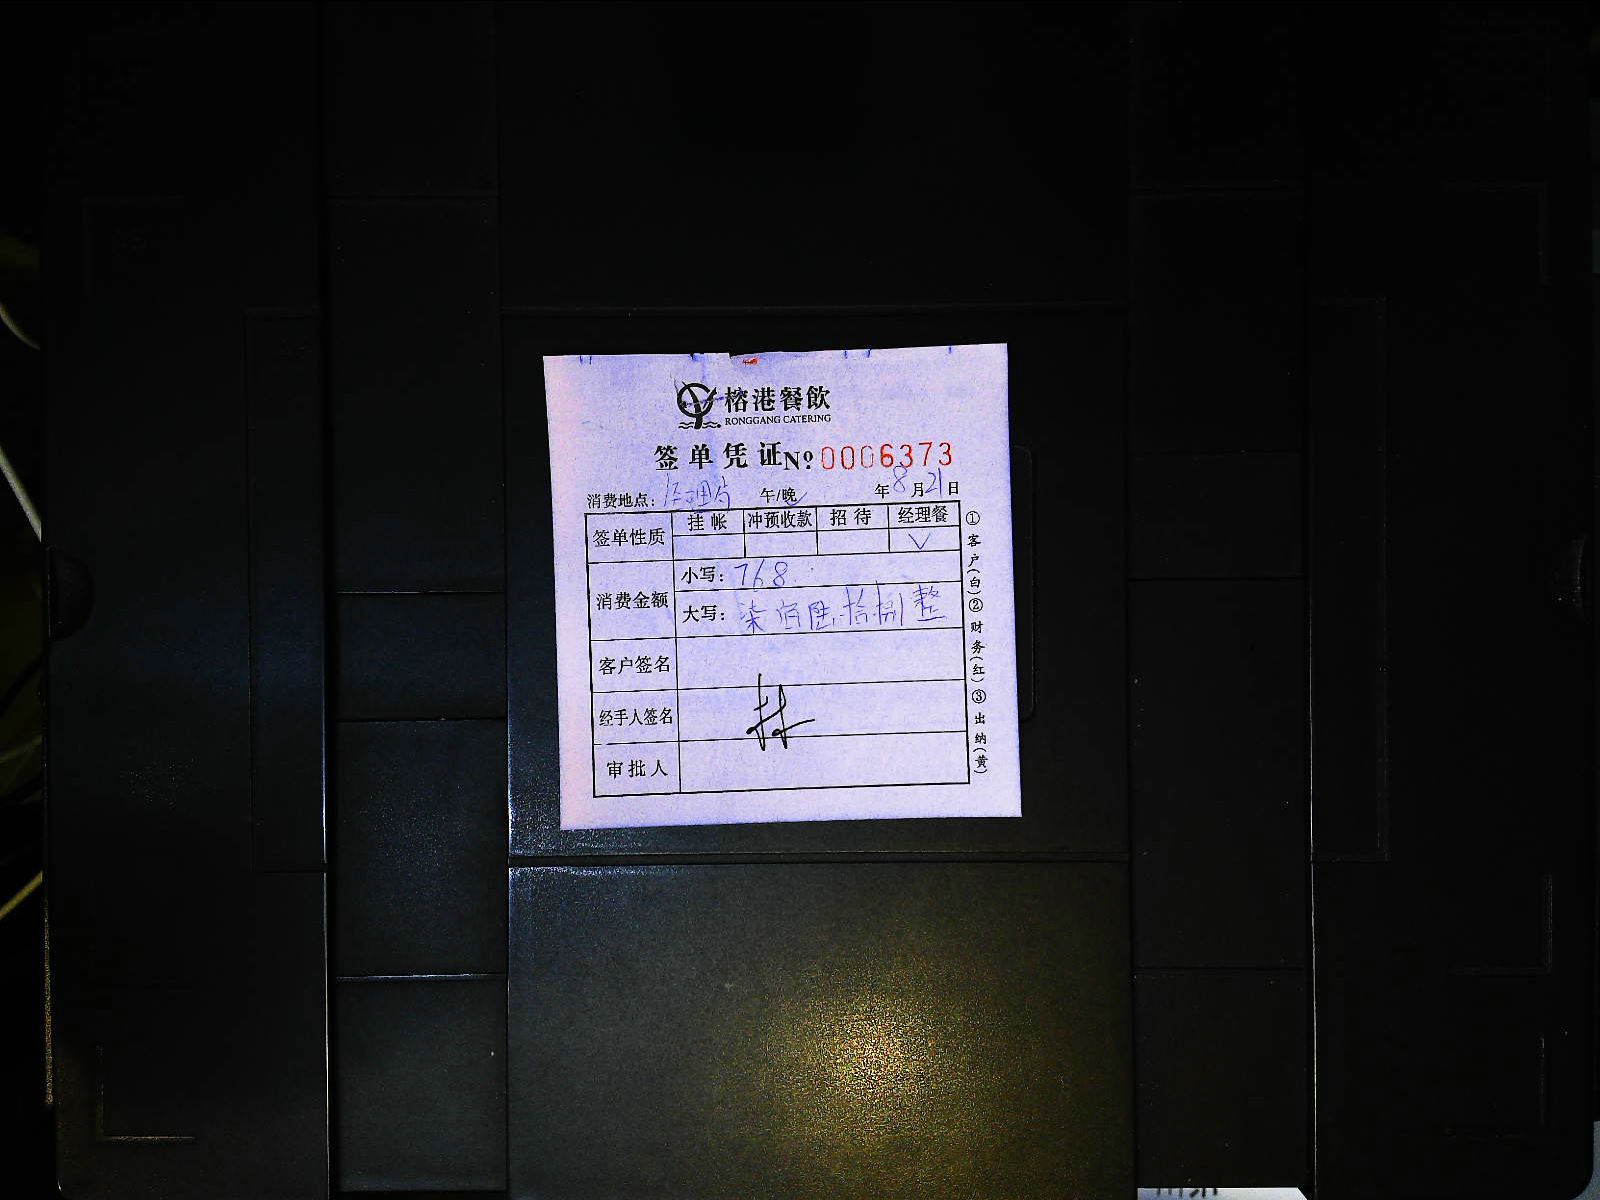 榕港餐飲
RONGGANG CATERING
签单凭证 No: 0006373
消费地点: 经理 午/晚 年8月21日
签单性质 挂帐 冲预收款 招待 经理餐
√
消费金额 小写: 768.
大写: 柒佰陆拾捌整
客户签名
经手人签名
审批人
①客户(白)②财务(红)③出纳(黄)